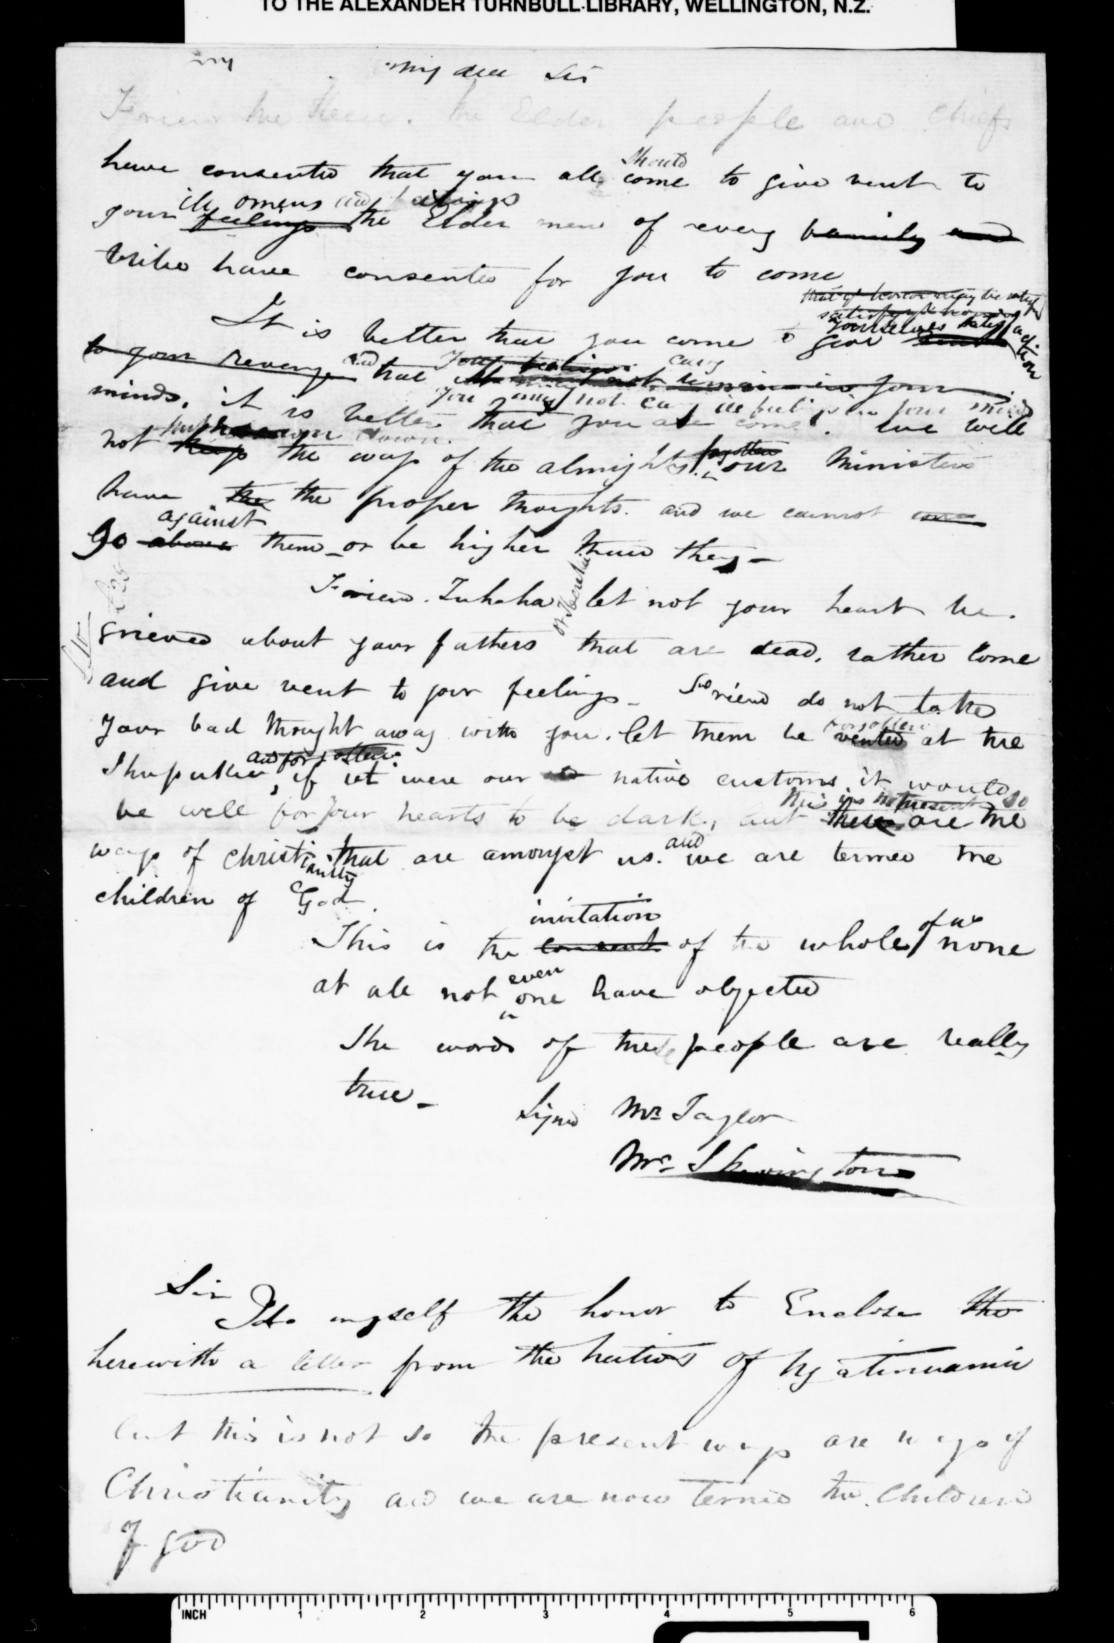 TO THE ALEXANDER TURNBULL LIBRARY, WELLINGTON, N.Z.
my My dear Sir
Friend the Elder people and Chiefs
should
have consented that you all come to give vent to
ill omens and feelings
your feelings the Elder men of every family and
tribe have consented for you to come
yourselves
It is better that you come to give
to your revenge and that your feelings carry remain in your
you may not carry ill feelings in your mind
minds, it is better that you all come. We will
down.
not keep the ways of the almighty forgotten our Ministers
have the the proper thoughts. and we cannot
against
go above them or be higher than they
Friend Tuhaha let not your heart be
grieved about your fathers that are dead, rather Come
and give vent to your feelings - Friend do not take
forgotten
your bad thought away with you. let them be vented at the
and forgotten
Ihupuku, if it were our native customs it would
this is not present so
be well for your hearts to be dark, but these are the
and
ways of Christianity that are amongst us. we are termed the
children of God.
invitation
This is the consent of the whole of us none
even
at all not one have objected
The words of these people are really
true -
Signed Mr Taylor
Mr Skevington
Sir
I do myself the honor to Enclose the
herewith a letter from the natives of Ngatiruanui
but this is not so the present ways are ways of
Christianity and we are now termed the Children
of God
INCH 1 2 3 4 5 6